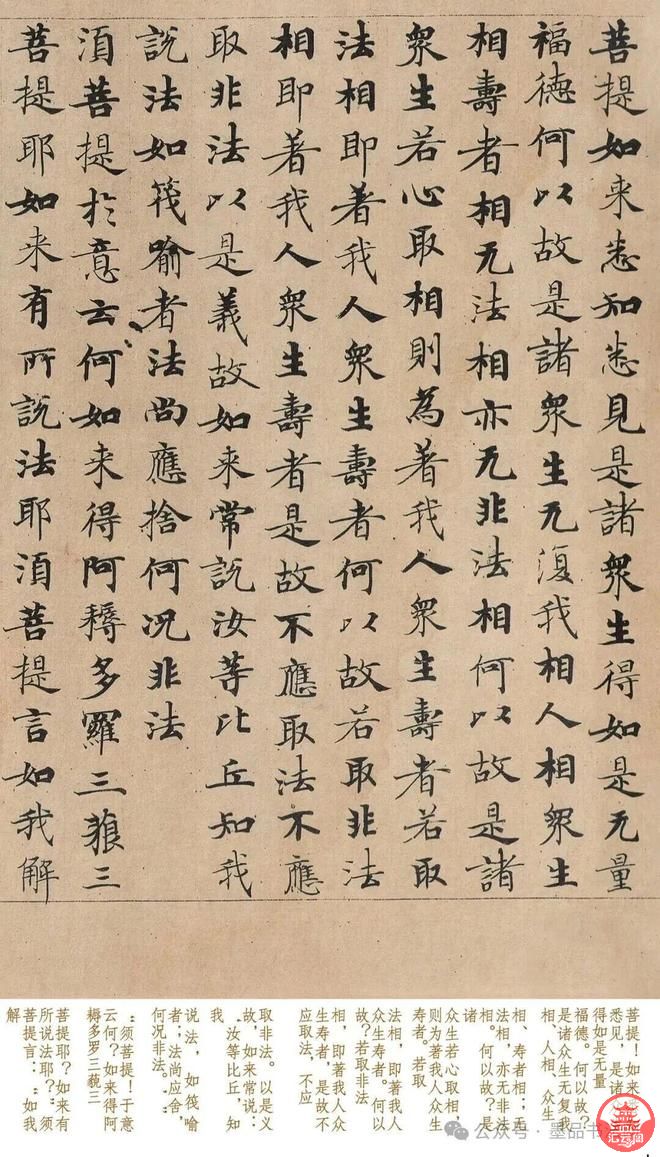 菩提如来悉知悉見是諸衆生得如是无量
福德何以故是諸衆生无復我相人相衆生
相壽者相无法相亦无非法相何以故是諸
衆生若心取相則為著我人衆生壽者若取
法相即著我人衆生壽者何以故若取非法
相即著我人衆生壽者是故不應取法不應
取非法以是義故如来常說汝等比丘知我
說法如筏喻者法尚應捨何况非法
湏菩提於意云何如来得阿耨多羅三藐三
菩提耶如来有所說法耶湏菩提言如我解
菩提！如来
悉见，是诸
得如是无量
福德。何以故？
是诸众生无复我
相、人相、众生
相、寿者相；无
法相，亦无非法
相。何以故？是
诸
众生若心取相，
则为著我人众生
寿者。若取
法相，即著我人
众生寿者。何以
故？若取非法
相，即著我人众
生寿者，是故不
应取法，不应
取非法。以是义
故，如来常说：
“汝等比丘，知
我
说法，如筏喻
者；法尚应舍，
何况非法。”
“须菩提！于意
云何？如来得阿
耨多罗三藐三
菩提耶？如来有
所说法耶？”须
菩提言：“如我
解
公众号·墨品书
汇云阁